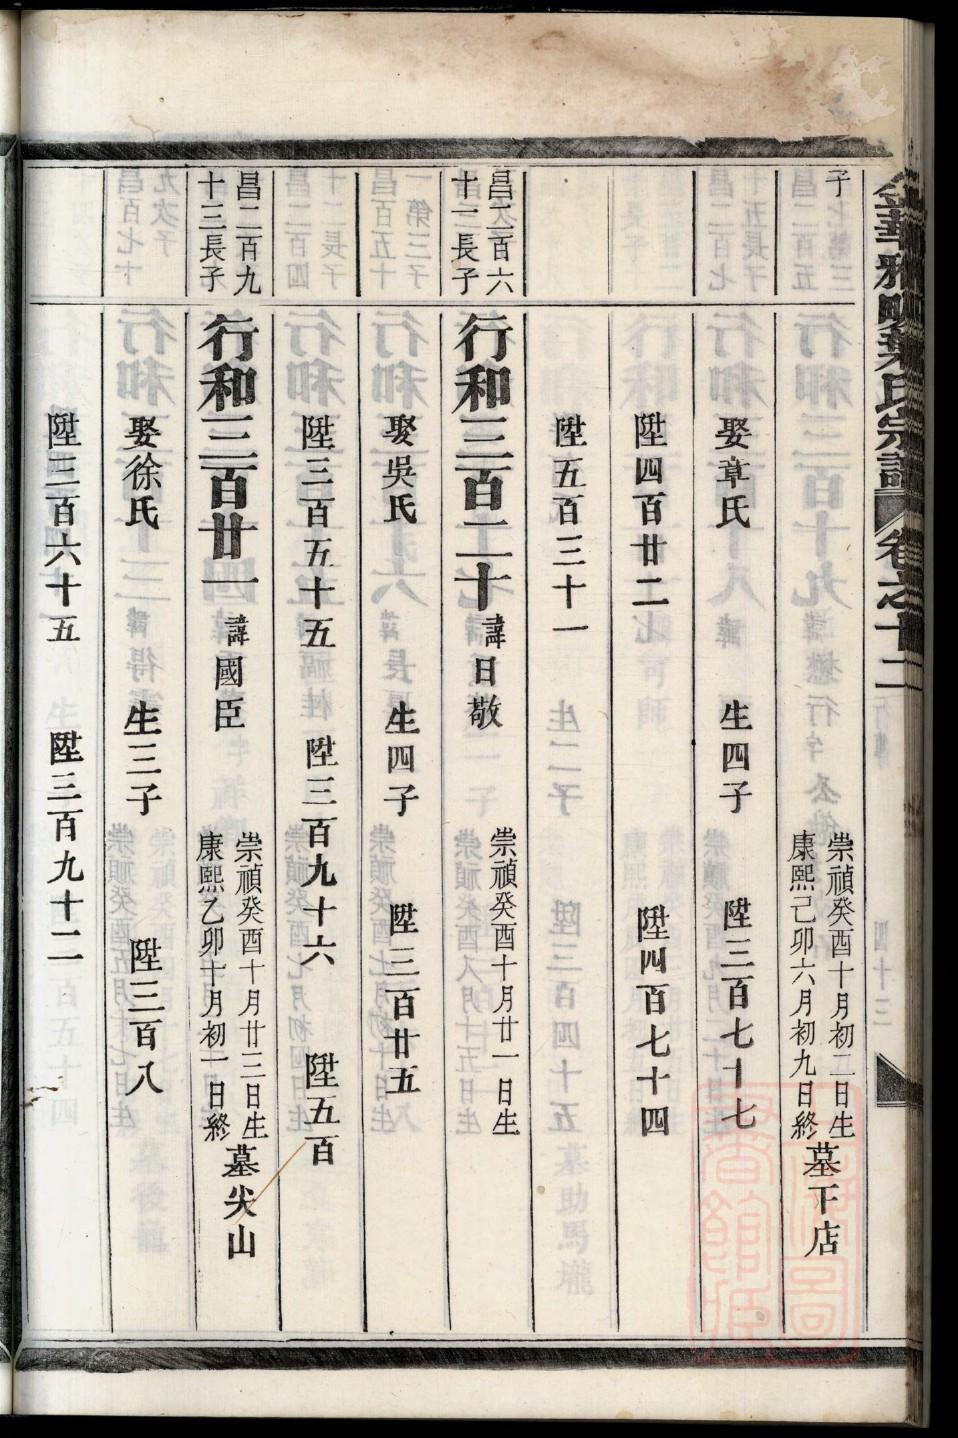 金華雅畈葉氏宗譜 卷之十二
子
崇禎癸酉十月初二日生
康熙己卯六月初九日終
墓下店
娶章氏 生四子 陞三百七十七
陞四百廿二 陞四百七十四
陞五百三十一
昌二百六
十二長子
行和三百二十 諱日敬
崇禎癸酉十月廿一日生
娶吳氏 生四子 陞三百廿五
陞三百五十五 陞三百九十六 陞五百
昌二百九
十三長子
行和三百廿一 諱國臣
崇禎癸酉十月廿三日生
康熙乙卯十月初一日終
墓尖山
娶徐氏 生三子 陞三百八
陞三百六十五 陞三百九十二